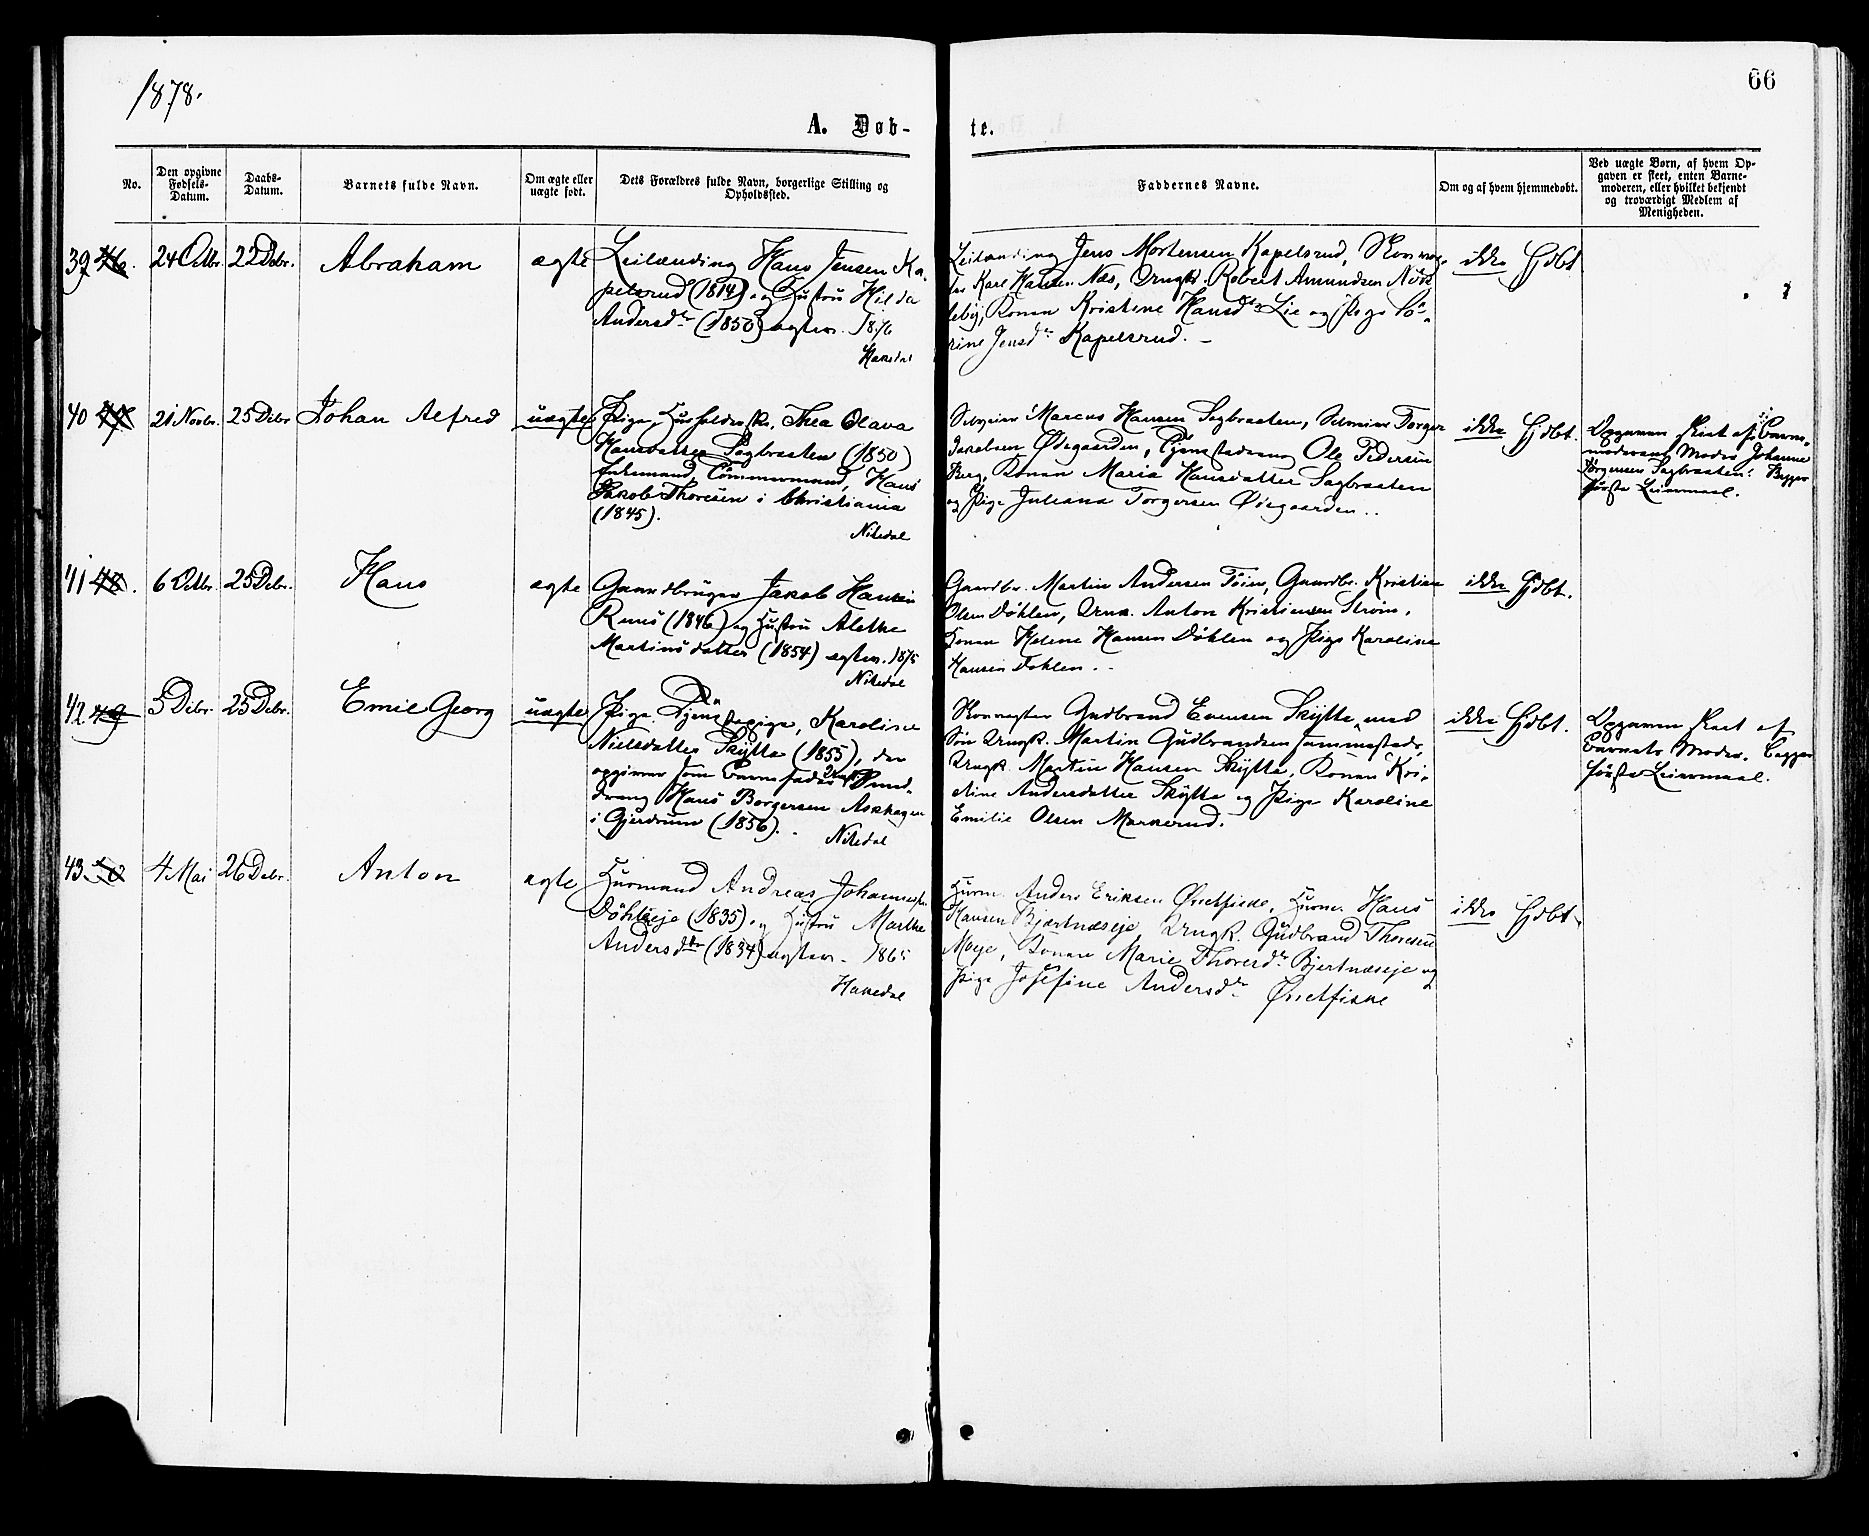 1878.
66
A. Døb-
te.
No.
Den opgivne
Fødsels-
Datum.
Daabs-
Datum.
Barnets fulde Navn.
Om ægte eller
uægte født.
Dets Forældres fulde Navn, borgerlige Stilling og
Opholdssted.
Faddernes Navne.
Om og af hvem hjemmedøbt.
Ved uægte Børn, af hvem Op-
gaven er skeet, enten Barne-
moderen, eller hvilket bekjendt
og troværdigt Medlem af
Menigheden.
39 46.
24 Octbr.
22 Debr.
Abraham
ægte
Leilænding Hans Jensen Ka-
pelsrud (1814) og Hustru Hilda
Andersdtr (1850) ægtev. 1876
Hakedal
Leilænding Jens Mortensen Kapelsrud, Skomag-
er Karl Hansen Næs, Ungk. Robert Amundsen
leby, Konen Kristine Hansdtr Lie og Pige Sö-
rine Jensdtr Kapelsrud. –
ikke Hjdbt
40 47
21 Novbr.
25 Debr
Johan Alfred
uægte
Pige, Husholderske, Thea Olava
Hansdatter Sagbraaten (1850)
Enkemand Tömmermand, Hans
Jakob Thoresen i Christiania
(1845).
Nitedal
Selveier Marcus Hansen Sagbraaten, Selveier Torger
Jakobsen Ödegaarden, Tjenestedreng Ole Pedersen
Berg, Konen Maria Hansdatter Sagbraaten
og Pige Juliana Torgersen Ödegaarden..
ikke Hjdbt.
Opgaven skeet af Barne-
moderens Moder Johanne
Jörgensen Sagbraaten. Begges
förste Leiermaal.
41 48.
6 Octbr.
25 Debr.
Hans
ægte
Gaardbruger Jakob Hansen
Ruus (1846) og Hustru Alethe
Martinusdatter (1854) ægtev. 1875
Nitedal
Gaardbr. Martin Andersen Töien, Gaardbr. Kristian
Olsen Döhlen, Anton Kristiansen Ström,
Konen Helene Hansen Döhlen og Pige Karoline
Hansen Döhlen..
ikke Hjdbt.
42 49
5 Debr.
25 Debr.
Emil Georg
uægte
Pige, Tjenestepige, Karoline
Nielsdatter Skÿtta (1855), der
opgiver som Barnefader Ungk. Smed-
dreng Hans Borgersen Askhagen
i Gjerdrum (1856).
Nitedal
Skomager Gudbrand Evensen Skÿtta, med
Sön Ungk. Martin Gudbrandsen sammesteds,
Ungk. Martin Hansen Skÿtta, Konen Kri-
stine Andersdatter Skÿtta og Pige Karoline
Emilie Olsen Markerud.
ikke Hjdbt.
Opgaven skeet af
Barnets Moder. Begges
förste Leiermaal.
43 50
4 Mai
26 Debr.
Anton
ægte
Husmand Andreas Johannessen
Döhleneje (1835) og Hustru Marthe
Andersdtr (1834) ægtev. 1865
Hakedal
Husm. Anders Eriksen Örretfiske, Husm. Hans
Hansen Bjertnæseje Ungk. Gudbrand Thoresen
Moje, Konen Marie Thoresdtr Bjertnæseje og
Pige Josefine Andersdtr Örretfiske
ikke Hjdbt.